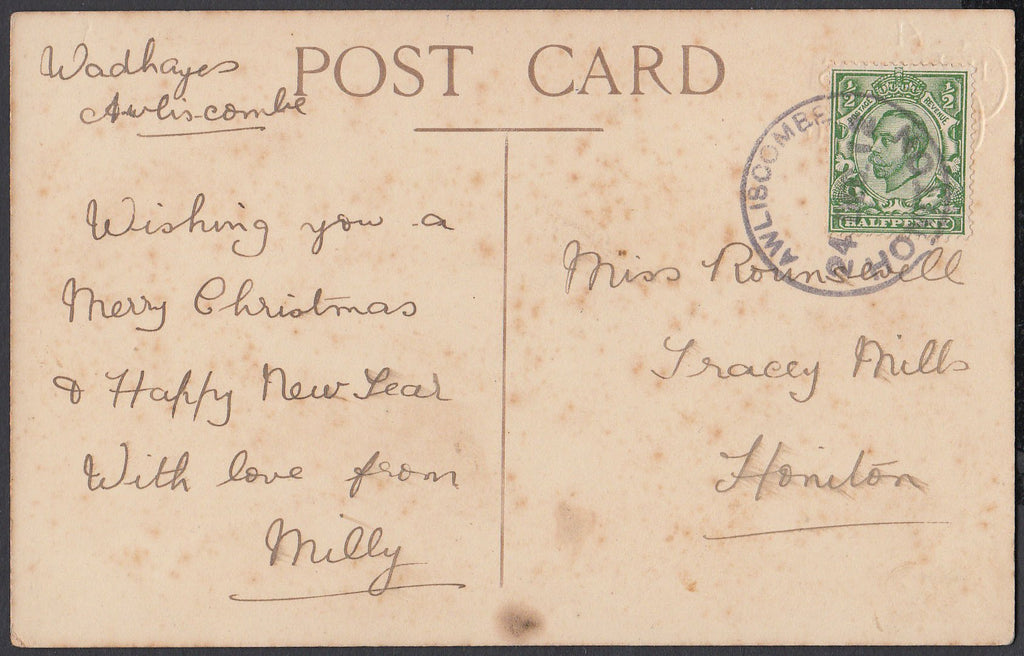 Wadhayes
Awliscombe
POST CARD
Wishing you a
Merry Christmas
& Happy New Year
With love from
Milly
½ ½
POSTAGE REVENUE
HALFPENNY
AWLISCOMBE
HONITON
24
Miss Rounsevell
Tracey Mills
Honiton